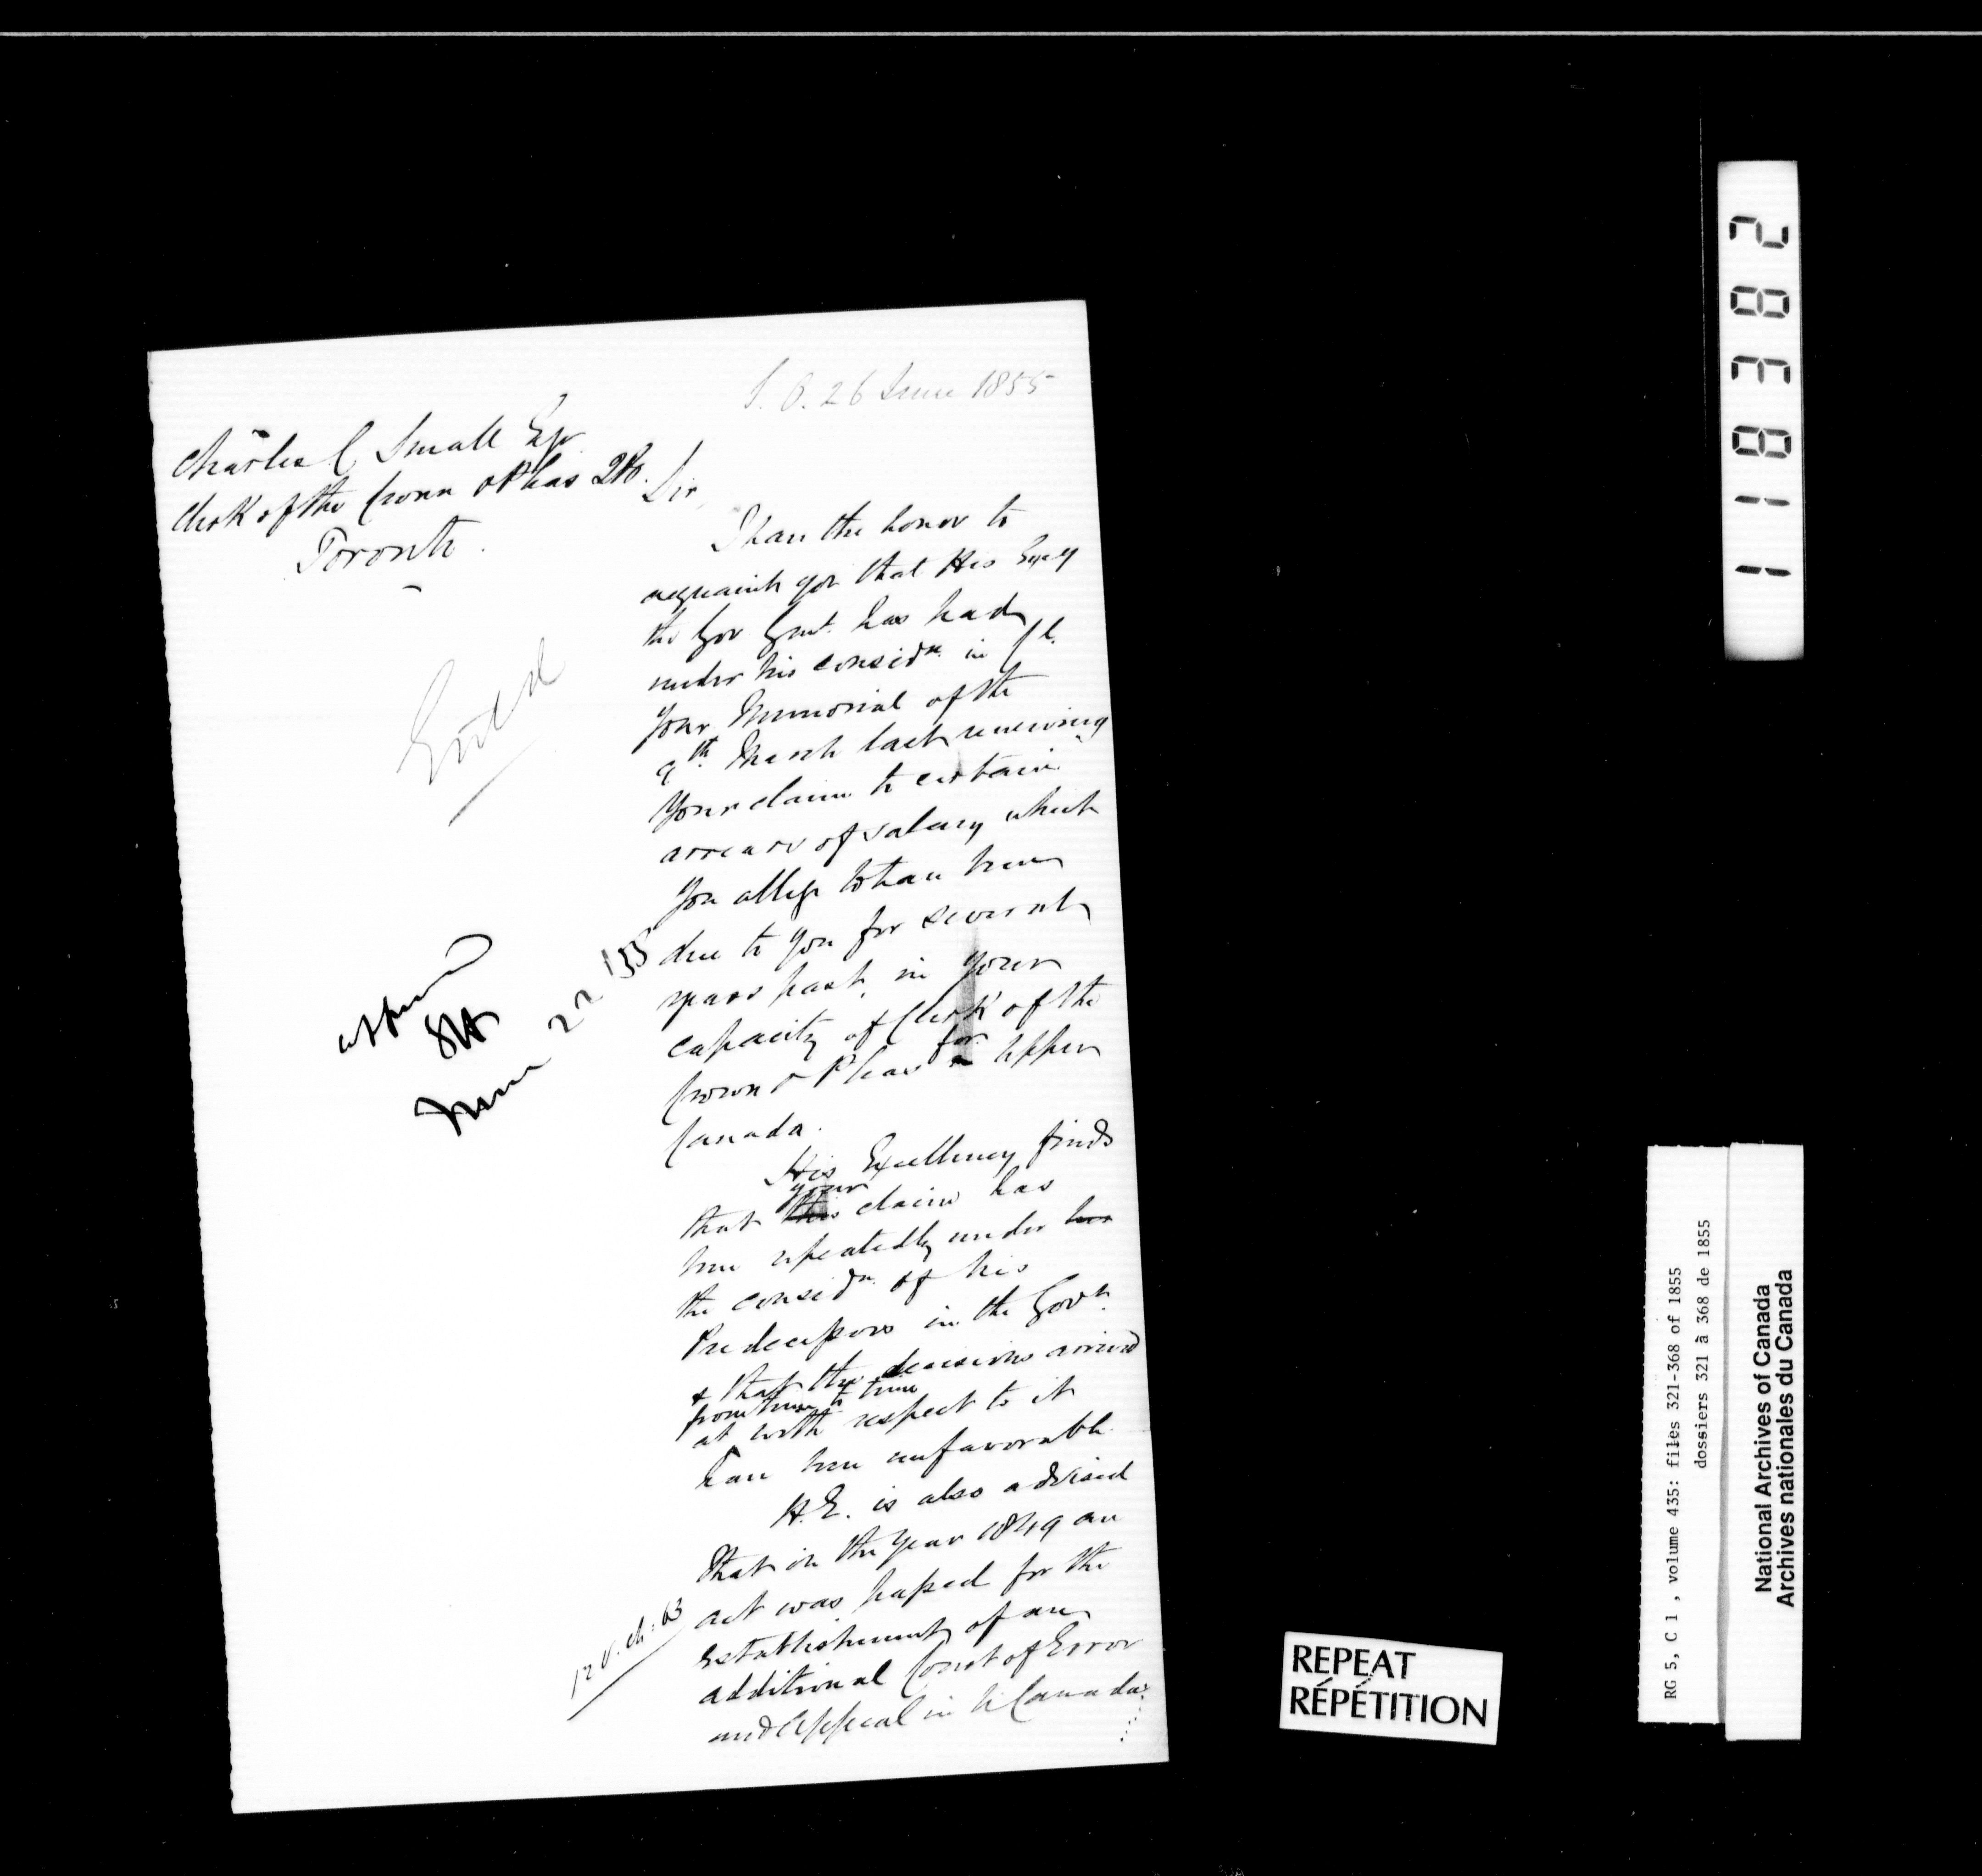 S.O. 26 June 1855
Charles C Small Esqr
Clerk of the Crown & Pleas QB.
Toronto.
Sir,
I have the honor to
acquaint you that His Excy
the Gov Genl. has had
under his considn. in Cl.
your Memorial of the
9th. March last renewing
your claim to certain
arrears of salary which
you allege to have been
due to you for several
years past, in your
capacity of Clerk of the
Crown & Pleas for Upper
Canada.
His Excellency finds
that this your claim has
been repeatedly under her
the considn. of his
Predecessors in the Govt.
& that the decisions arrived
from time to time
at with respect to it
have been unfavorable.
H.E. is also advised
that in the year 1849 an
act was passed for the
establishment of an
additional Court of Error
and Appeal in U Canada
Entd
approved
June 22 / 55
12 V. ch: 63
REPEAT
RÉPÉTITION
RG 5, C 1 , volume 435: files 321-368 of 1855
dossiers 321 à 368 de 1855
National Archives of Canada
Archives nationales du Canada
118382